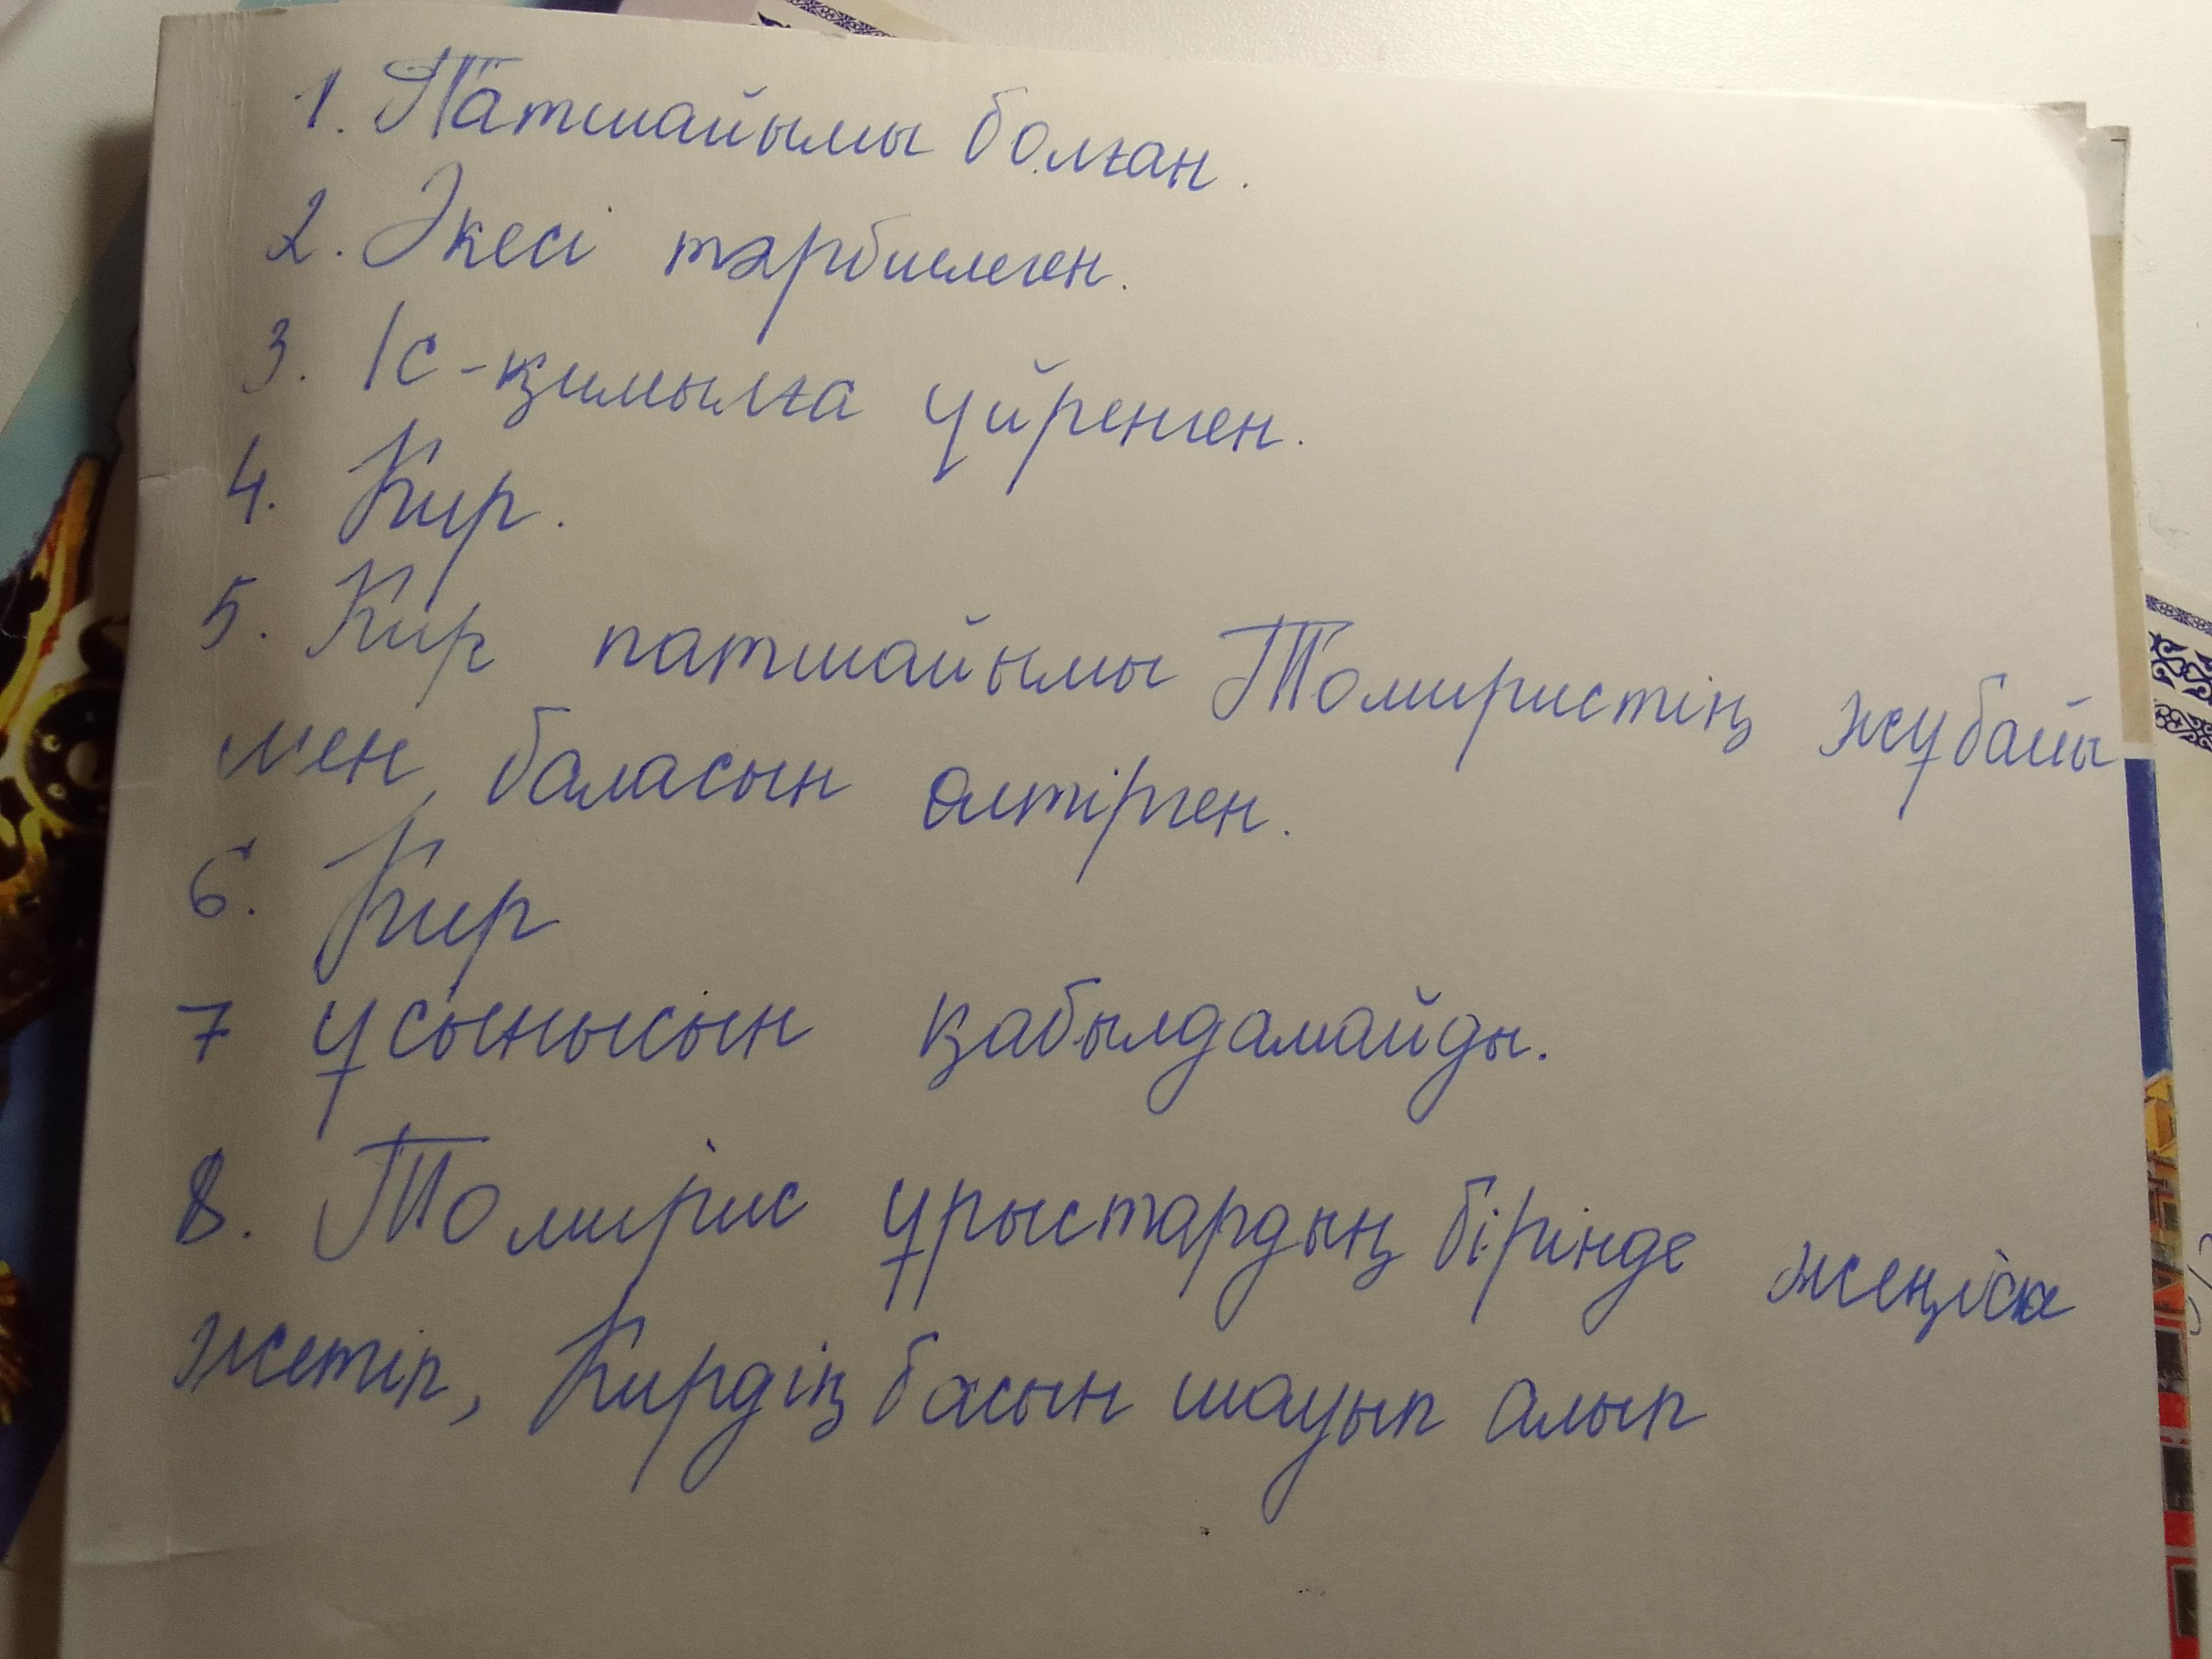 1. Патшайымы болған.
2. Әкесі тәрбиелеген.
3. Іс-қимылға үйренген.
4. Кир.
5. Кир патшайымы Томиристің жұбайы
мен баласын өлтірген.
6. Кир
7 Ұсынысын қабылдамайды.
8. Томирис ұрыстардың бірінде жеңіске
жетіп, Кирдің басын шауып алып